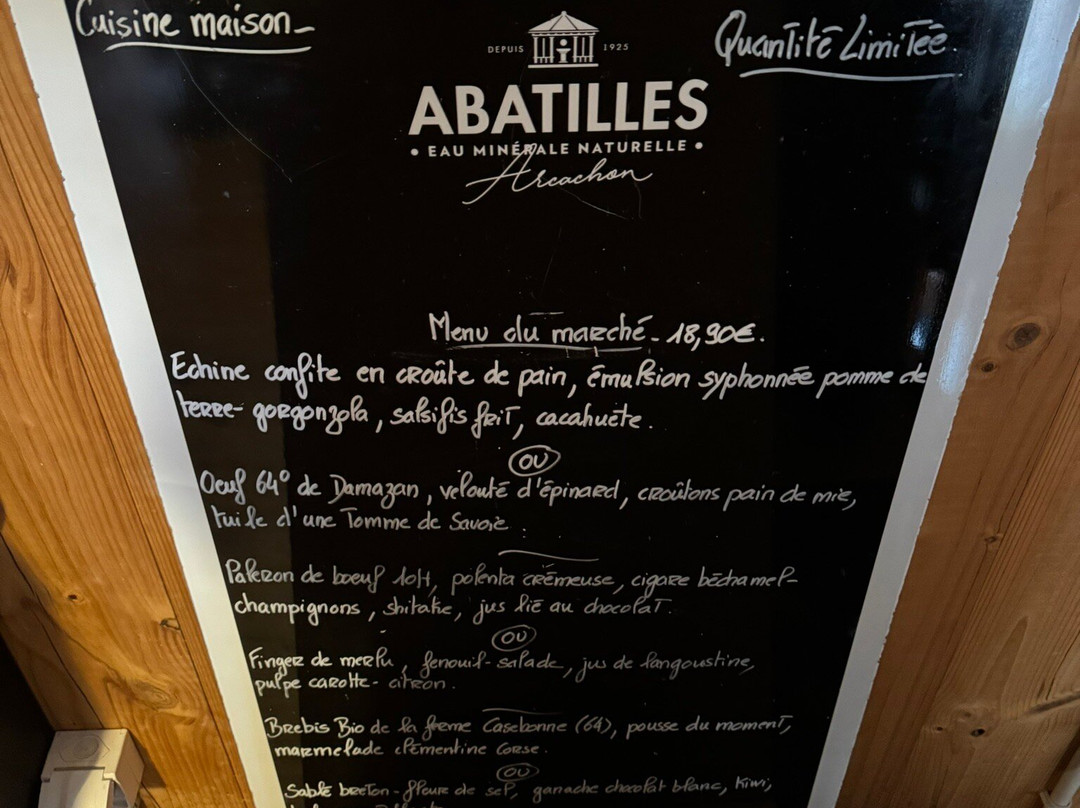 Cuisine maison
Quantité Limitée.
DEPUIS 1925
ABATILLES
• EAU MINÉRALE NATURELLE •
Arcachon
Menu du marché - 18,90€.
Echine confite en croûte de pain, émulsion syphonnée pomme de
terre - gorgonzola, salsifis frit, cacahuète.
OU
Oeuf 64° de Damazan, velouté d'épinard, croûtons pain de mie,
tuile d'une Tomme de Savoie.
Paleron de boeuf 10H, polenta crémeuse, cigare béchamel-
champignons, shitake, jus lié au chocolat.
OU
Finger de merlu, fenouil-salade, jus de langoustine,
pulpe carotte-citron.
Brebis Bio de la ferme Casebonne (64), pousse du moment,
marmelade clémentine Corse.
OU
Sablé breton-fleur de sel, ganache chocolat blanc, kiwi,